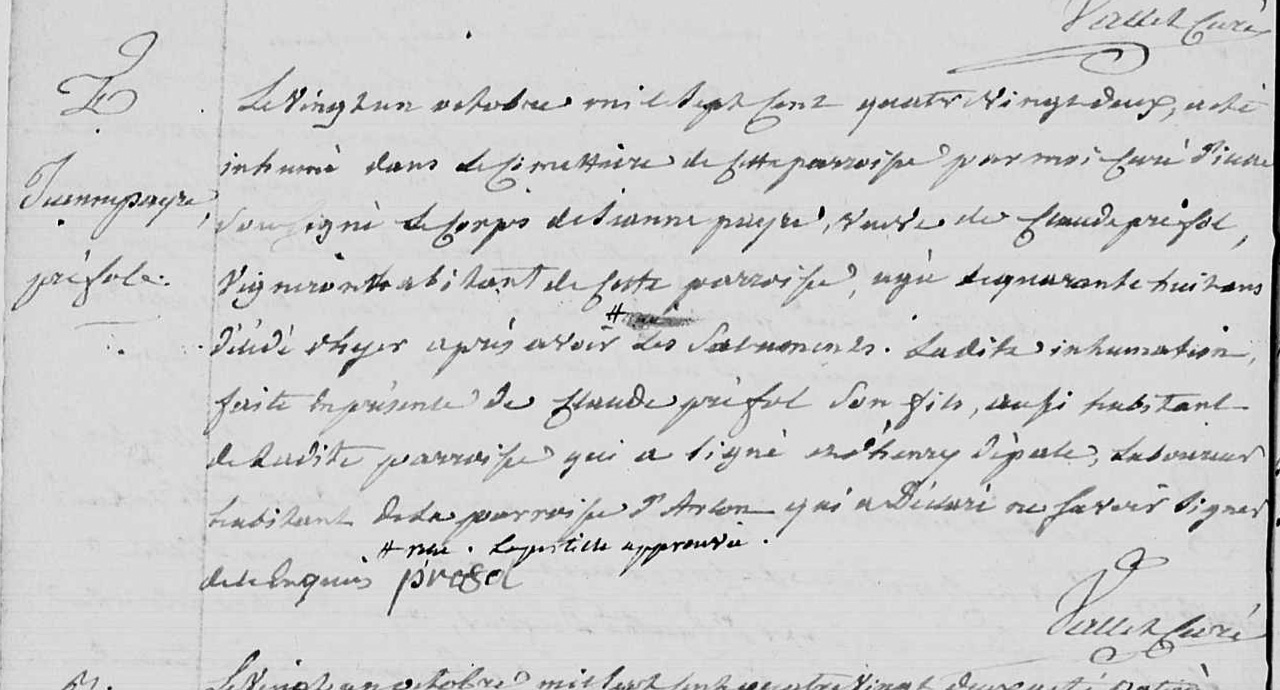 Vallet Curé
Le vingt un octobre mil sept cent quatre vingt deux, a été
inhumé dans le Cimettière de Cette parroisse par moi Curé d'icelle
Soussigné le Corps de Jeanne payre, veuve de Claude préfol,
Jeanne payre,
préfole.
Vigneron habitant de Cette parroisse, agée de quarante huit ans
décédé d'hyer après avoir # les Sacrements. Ladite inhumation,
faite en présence de Claude préfol Son fils, aussi habitant
de Ladite parroisse qui a Signé et d'henry Dépale, Laboureur
habitant de la parroisse d'Arlon qui a Déclaré ne Savoir Signer
# reçu. Lapostille approuvée.
de ce Enquis préfol
Vallet Curé
Le vingt un octobre mil sept cent quatre vingt deux a été